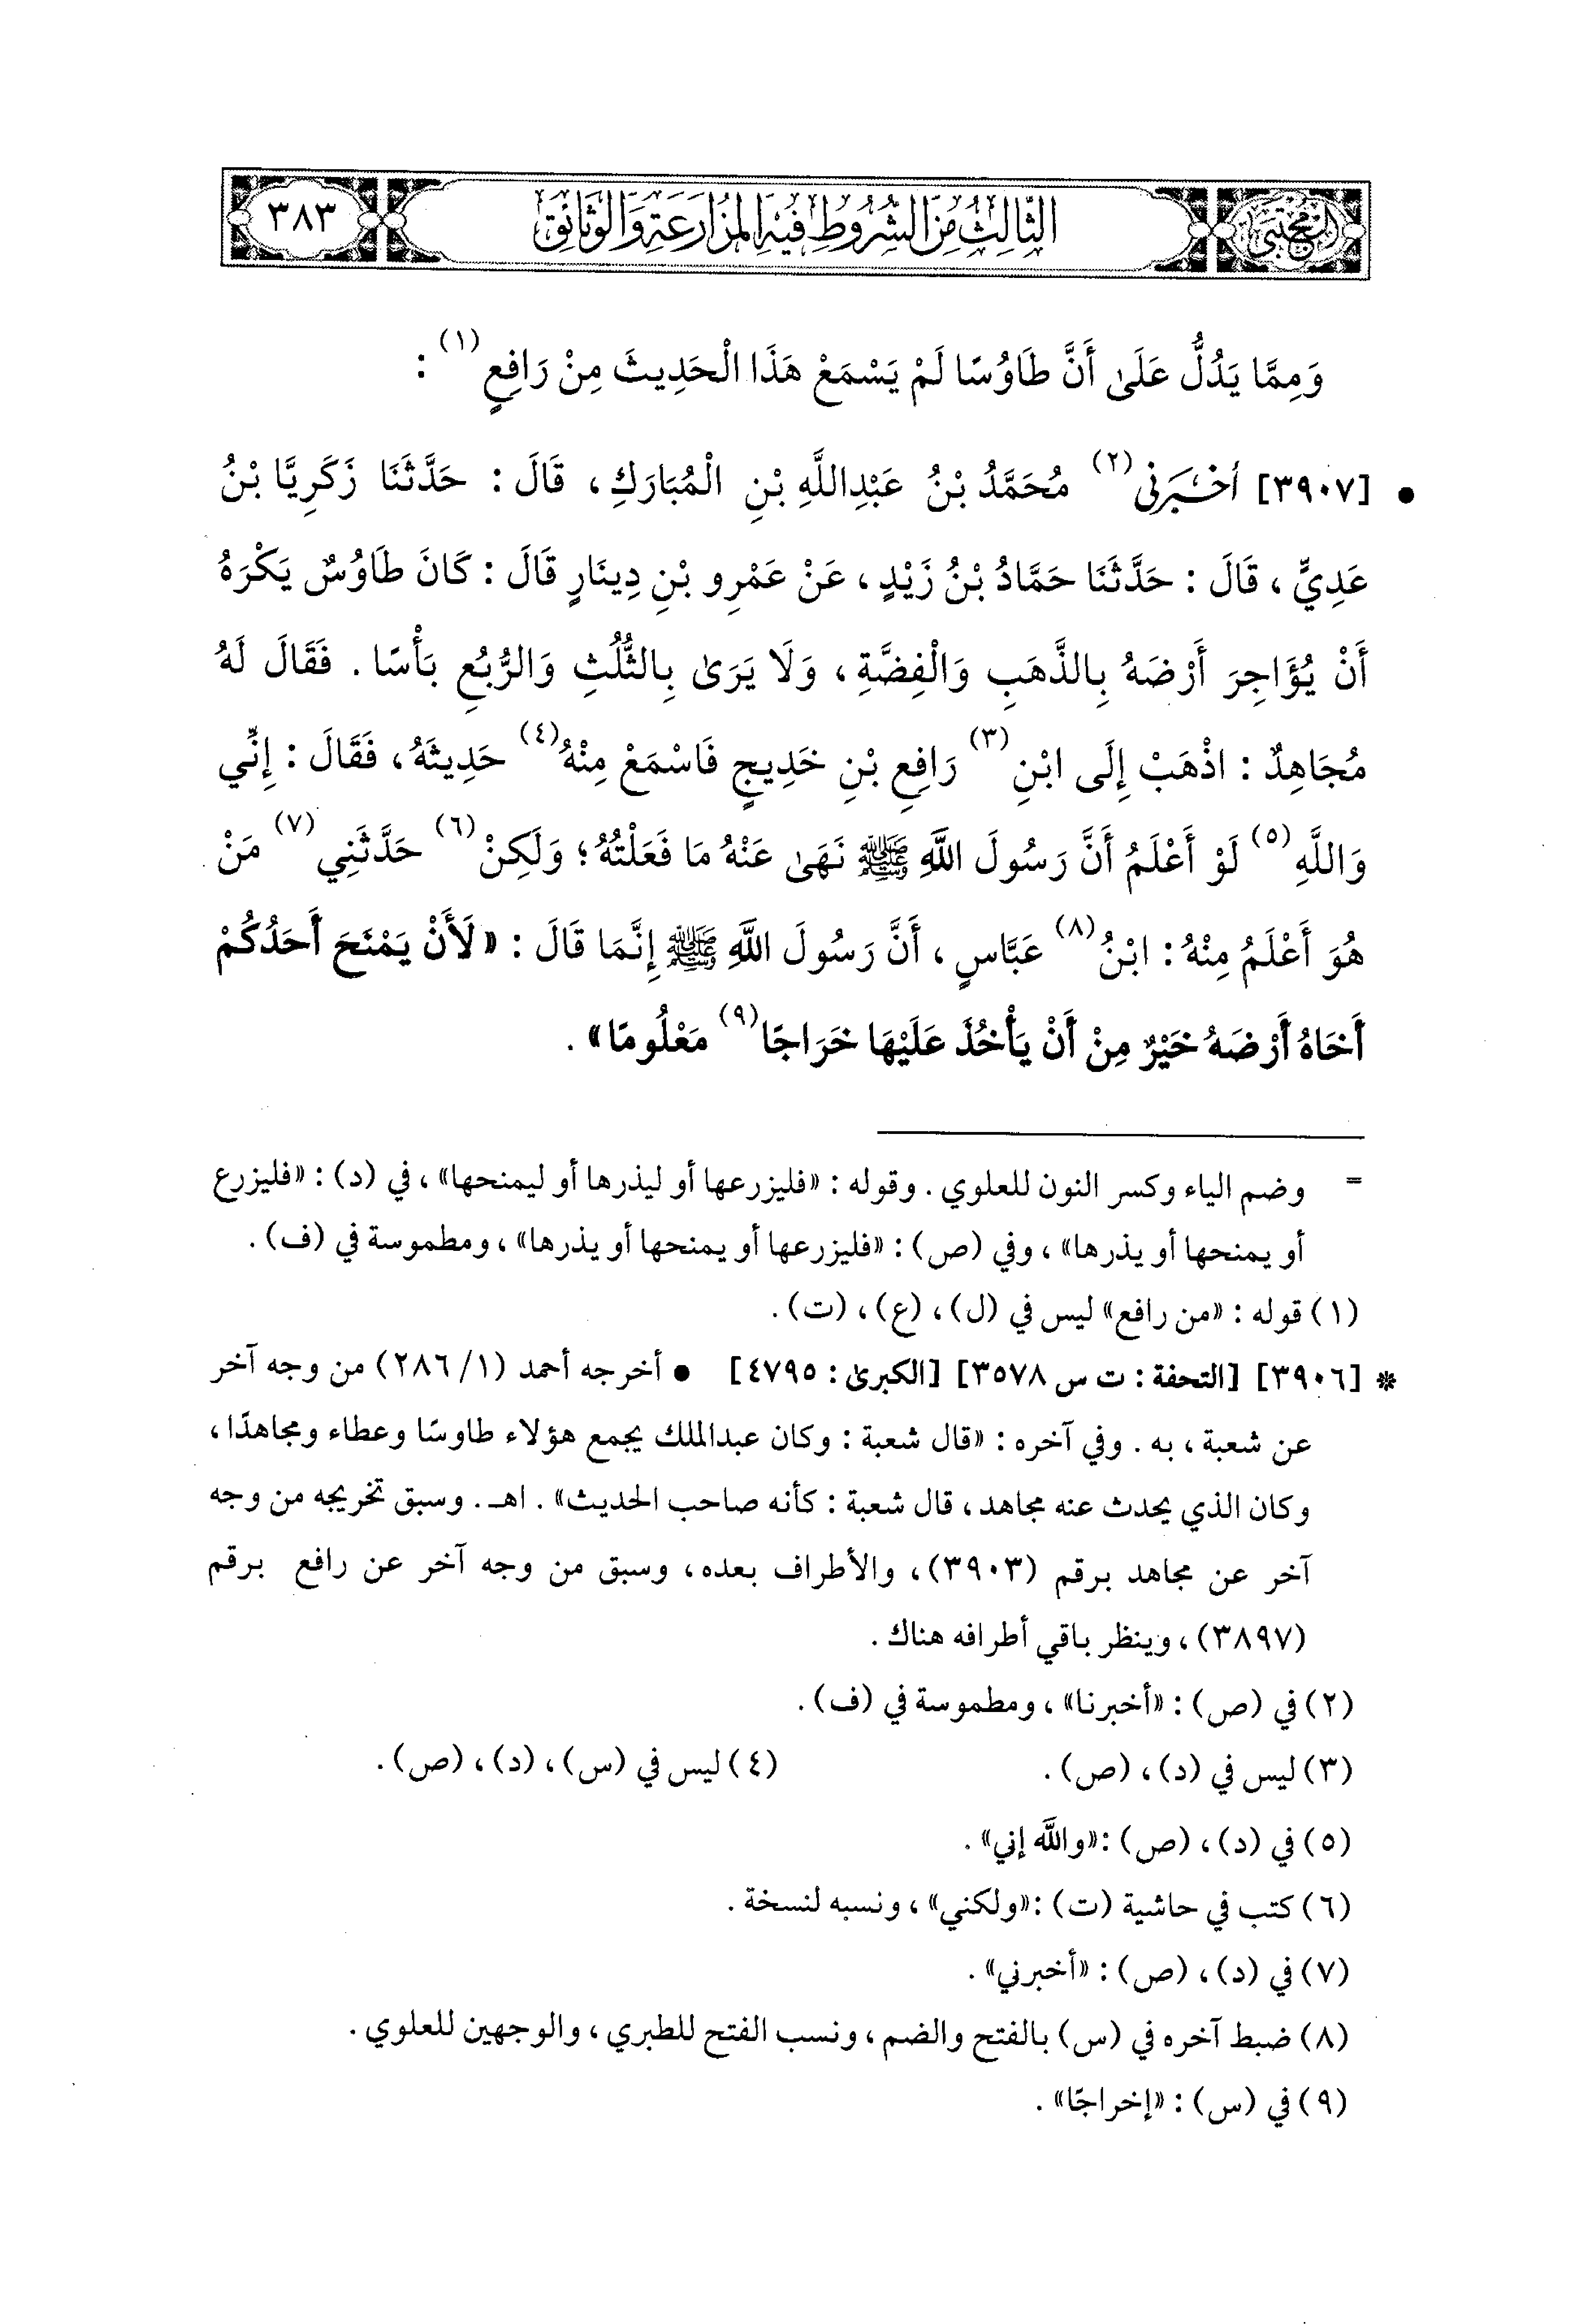 المجتبى
الثَّالِثُ مِنَ الشُّرُوطِ فِيْهِ الْمُزَارَعَةِ وَالْوَثَائِقِ
٣٨٣
وَمِمَّا يَدُلُّ عَلَى أَنَّ طَاوُسًا لَمْ يَسْمَعْ هَذَا الْحَدِيثَ مِنْ رَافِعٍ (١) :
• [٣٩٠٧] أَخْبَرَنِي (٢) مُحَمَّدُ بْنُ عَبْدِاللَّهِ بْنِ الْمُبَارَكِ، قَالَ : حَدَّثَنَا زَكَرِيَّا بْنُ
عَدِيٍّ ، قَالَ : حَدَّثَنَا حَمَّادُ بْنُ زَيْدٍ ، عَنْ عَمْرِو بْنِ دِينَارٍ قَالَ : كَانَ طَاوُسٌ يَكْرَهُ
أَنْ يُؤَاجِرَ أَرْضَهُ بِالذَّهَبِ وَالْفِضَّةِ ، وَلَا يَرَىٰ بِالثُّلُثِ وَالرُّبُعِ بَأْسًا . فَقَالَ لَهُ
مُجَاهِدٌ : اذْهَبْ إِلَى ابْنِ (٣) رَافِعِ بْنِ خَدِيجٍ فَاسْمَعْ مِنْهُ (٤) حَدِيثَهُ ، فَقَالَ : إِنِّي
وَاللَّهِ (٥) لَوْ أَعْلَمُ أَنَّ رَسُولَ اللَّهِ ﷺ نَهَىٰ عَنْهُ مَا فَعَلْتُهُ ؛ وَلَكِنْ (٦) حَدَّثَنِي (٧) مَنْ
هُوَ أَعْلَمُ مِنْهُ : ابْنُ (٨) عَبَّاسٍ ، أَنَّ رَسُولَ اللَّهِ ﷺ إِنَّمَا قَالَ : «لَأَنْ يَمْنَحَ أَحَدُكُمْ
أَخَاهُ أَرْضَهُ خَيْرٌ مِنْ أَنْ يَأْخُذَ عَلَيْهَا خَرَاجًا (٩) مَعْلُومًا» .
= وضم الياء وكسر النون للعلوي . وقوله : «فليزرعها أو ليذرها أو ليمنحها» ، في (د) : «فليزرع
أو يمنحها أو يذرها» ، وفي (ص) : «فليزرعها أو يمنحها أو يذرها» ، ومطموسة في (ف) .
(١) قوله : «من رافع» ليس في (ل) ، (ع) ، (ت) .
* [٣٩٠٦] [التحفة : ت س ٣٥٧٨] [الكبرىٰ : ٤٧٩٥] • أخرجه أحمد (١/ ٢٨٦) من وجه آخر
عن شعبة ، به . وفي آخره : «قال شعبة : وكان عبدالملك يجمع هؤلاء طاوسًا وعطاء ومجاهدًا ،
وكان الذي يحدث عنه مجاهد ، قال شعبة : كأنه صاحب الحديث» . اهـ . وسبق تخريجه من وجه
آخر عن مجاهد برقم (٣٩٠٣) ، والأطراف بعده ، وسبق من وجه آخر عن رافع برقم
(٣٨٩٧) ، وينظر باقي أطرافه هناك .
(٢) في (ص) : «أخبرنا» ، ومطموسة في (ف) .
(٣) ليس في (د) ، (ص) . (٤) ليس في (س) ، (د) ، (ص) .
(٥) في (د) ، (ص) : «واللَّه إني» .
(٦) كتب في حاشية (ت) : «ولكني» ، ونسبه لنسخة .
(٧) في (د) ، (ص) : «أخبرني» .
(٨) ضبط آخره في (س) بالفتح والضم ، ونسب الفتح للطبري ، والوجهين للعلوي .
(٩) في (س) : «إخراجًا» .